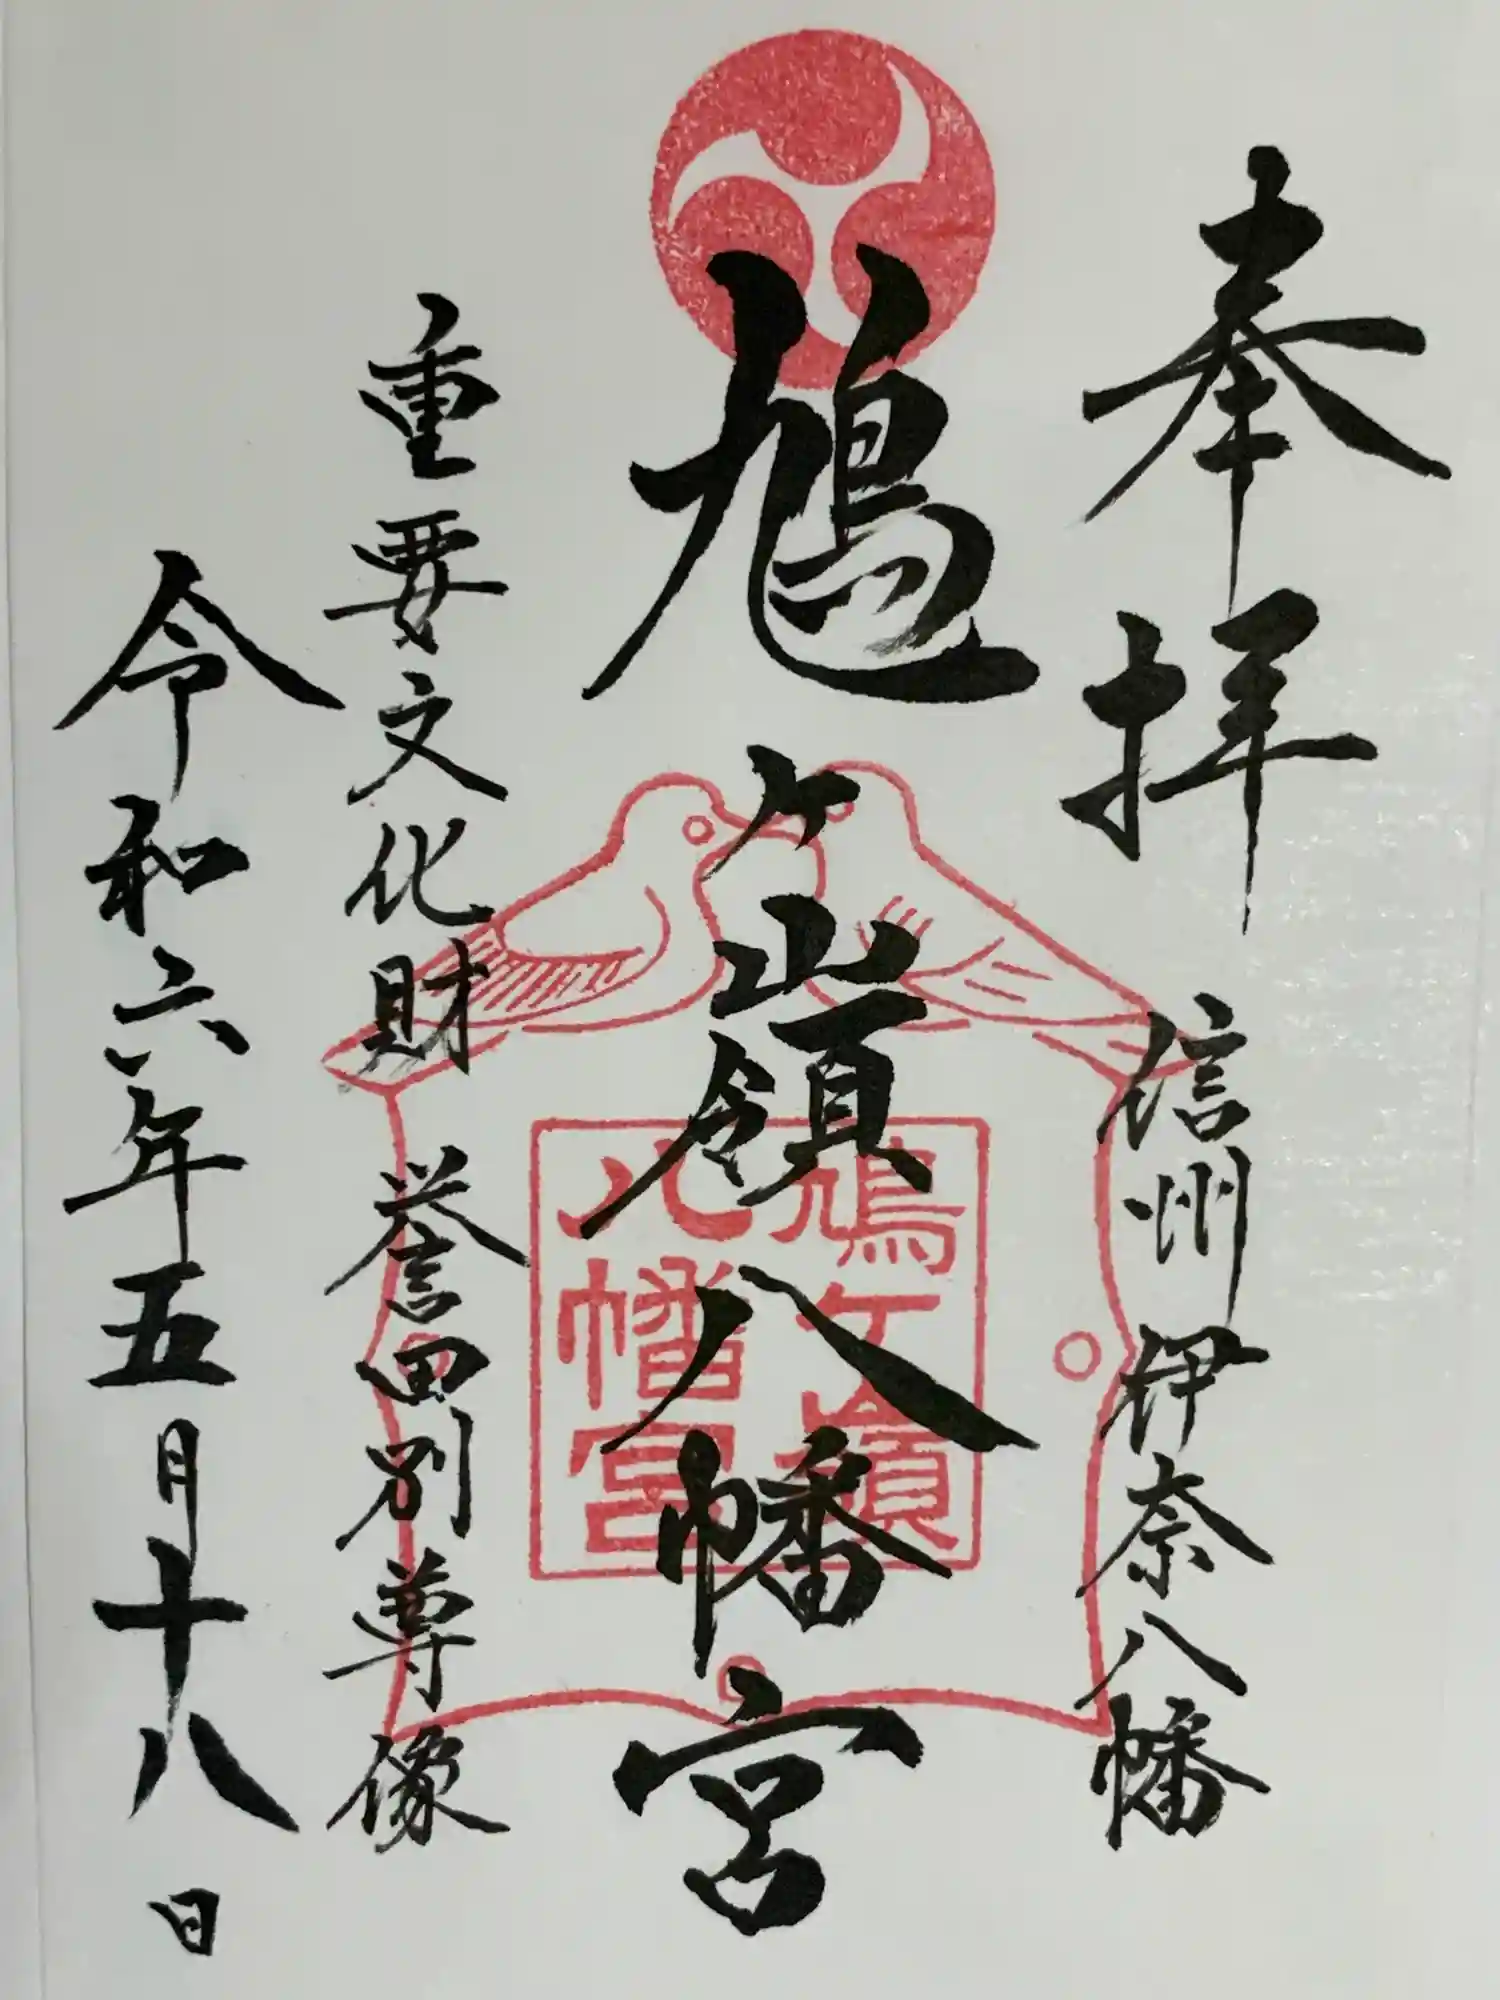 奉拝
信州伊奈八幡
鳩ヶ嶺八幡宮
鳩ヶ嶺
八幡宮
重要文化財 誉田別尊像
令和六年五月十八日